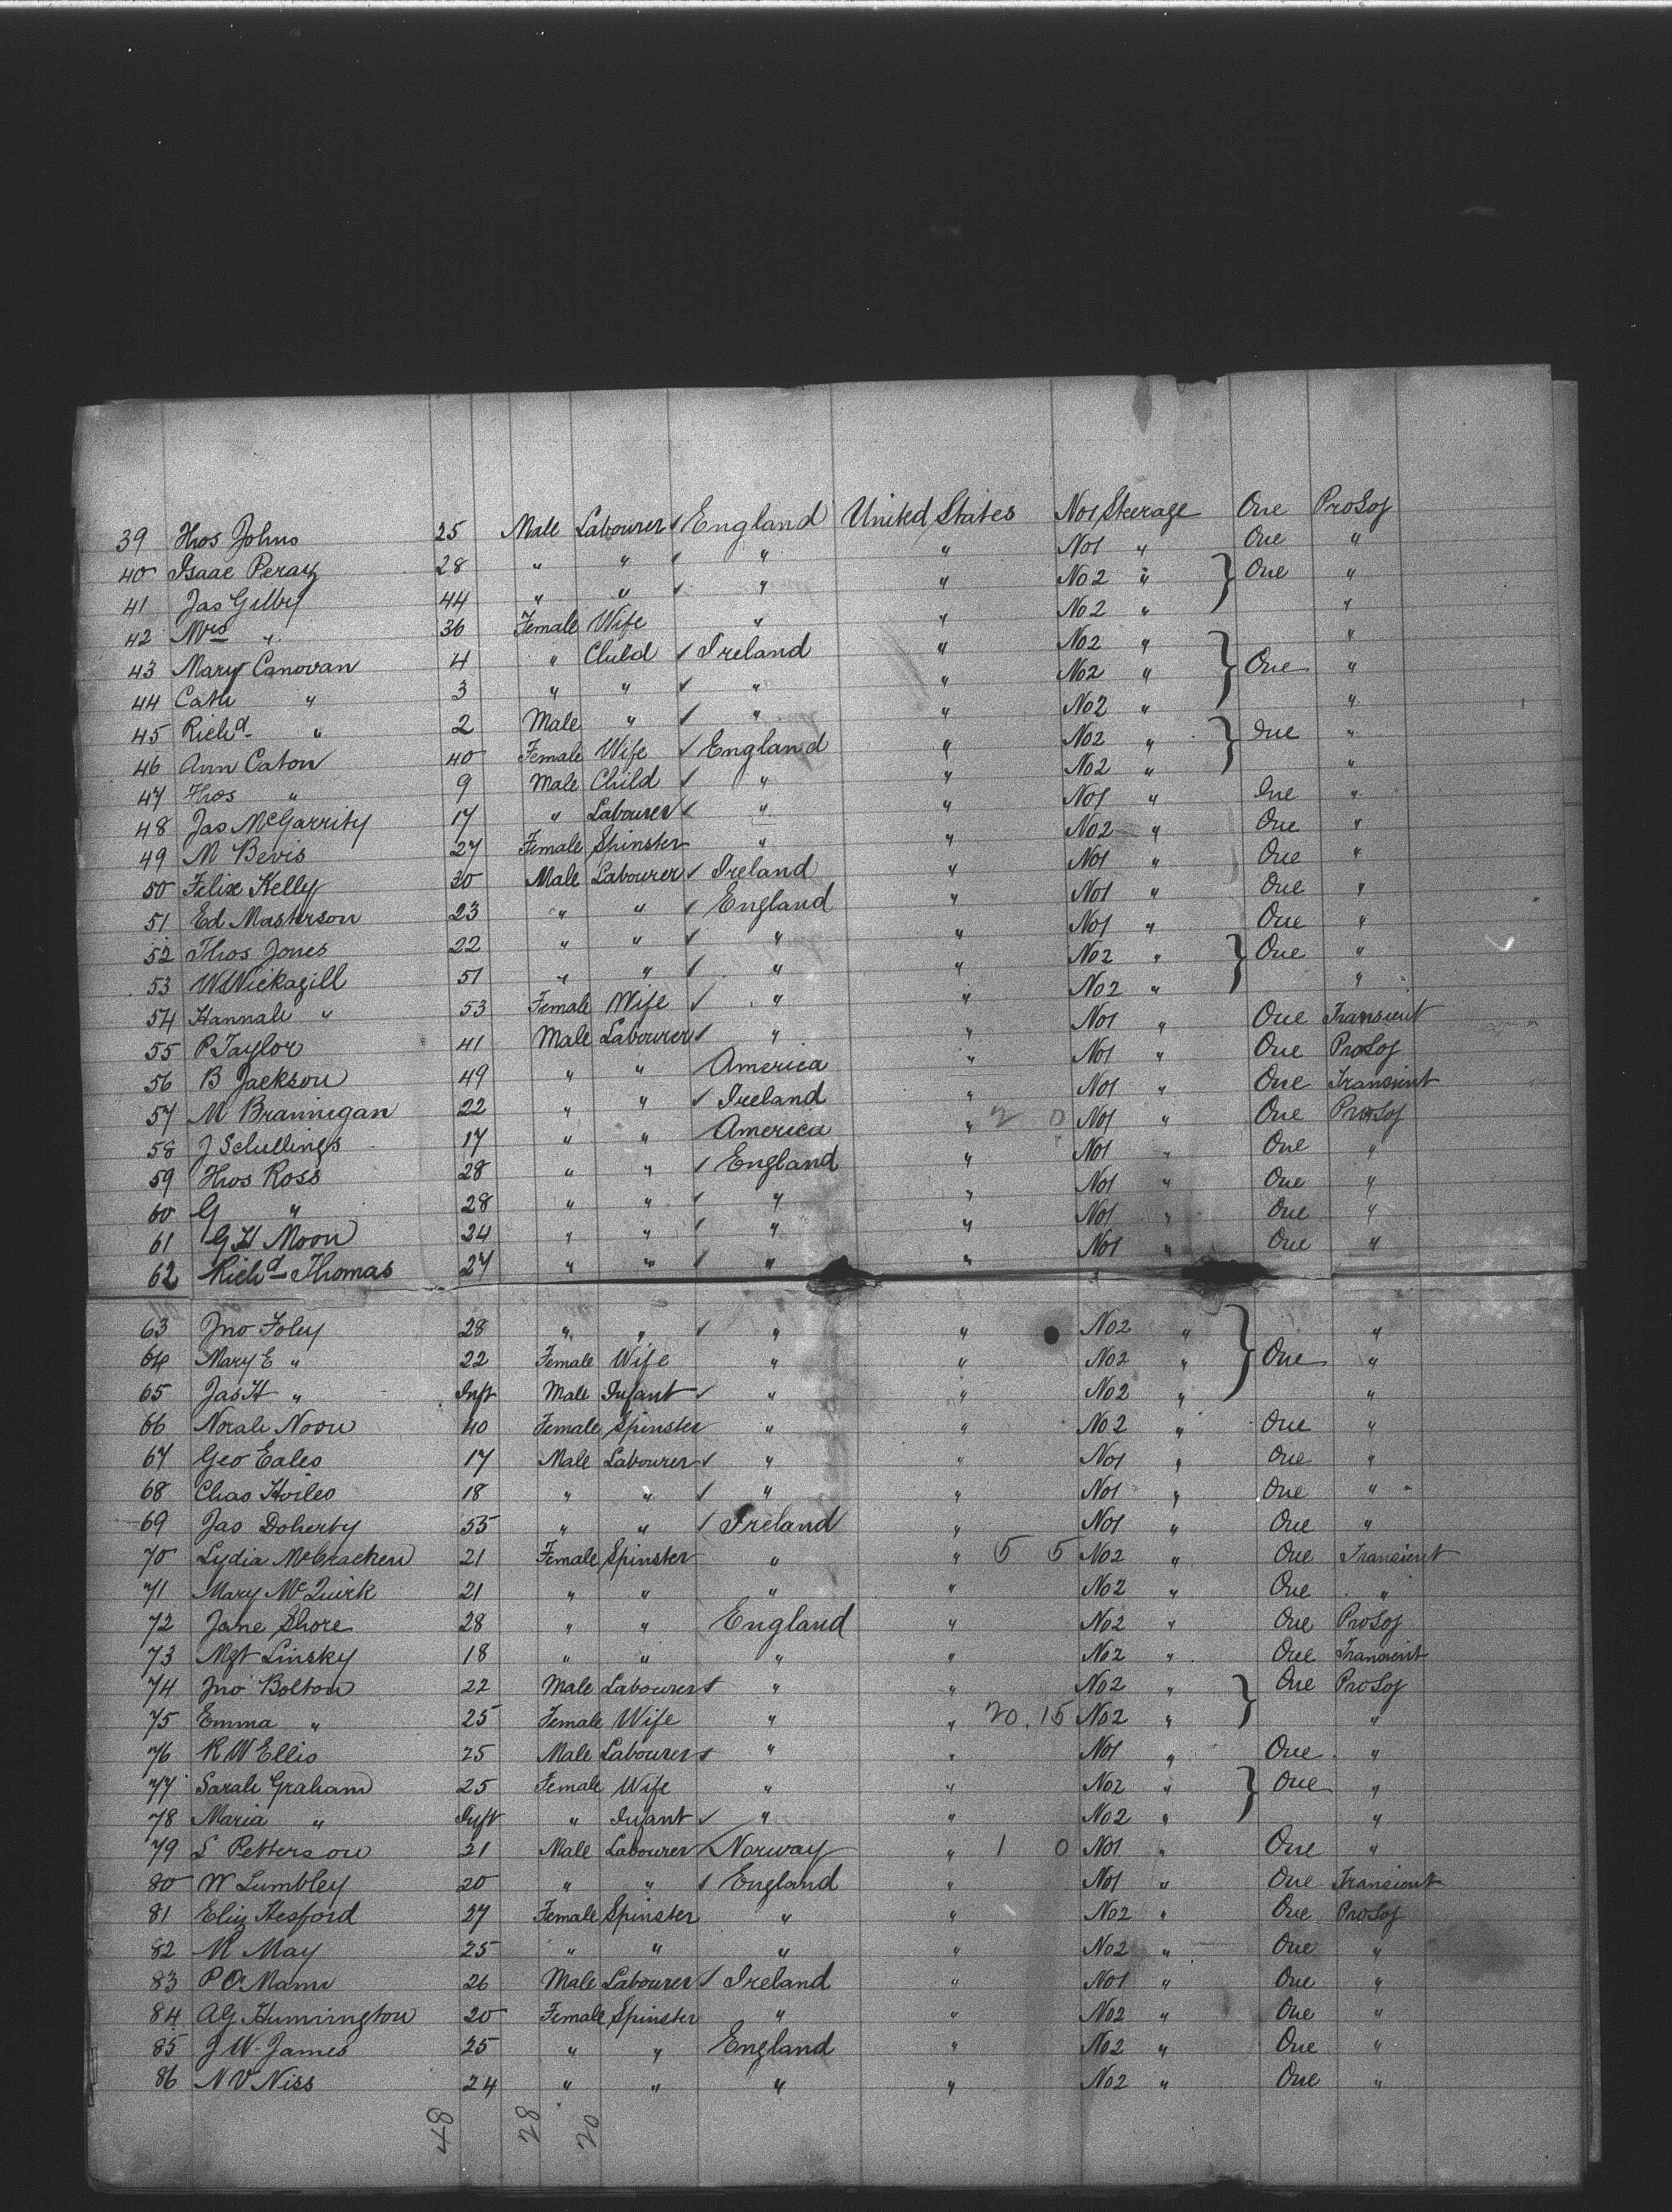 39 Thos Johns 25 Male Labourer ✓ England United States No1 Steerage One ProSoj
40 Isaac Peraz 28 " " ✓ " " No1 " One "
41 Jas Gilby 44 " " ✓ " " No2 " } One "
42 Mrs " 36 Female Wife " " No2 " "
43 Mary Canovan 4 " Child ✓ Ireland " No2 " "
44 Cath " 3 " " ✓ " " No2 " } One "
45 Richd " 2 Male " ✓ " " No2 " "
46 Ann Caton 40 Female Wife ✓ England " No2 " } One "
47 Thos " 9 Male Child ✓ " " No2 " "
48 Jas McGarrity 17 " Labourer ✓ " " No1 " One "
49 M Bevis 27 Female Spinster " " No2 " One "
50 Felix Kelly 30 Male Labourer ✓ Ireland " No1 " One "
51 Ed Masterson 23 " " ✓ England " No1 " One "
52 Thos Jones 22 " " ✓ " " No1 " One "
53 W Wickagill 51 " " ✓ " " No2 " } One "
54 Hannah " 53 Female Wife ✓ " " No2 " "
55 P Taylor 41 Male Labourer ✓ " " No1 " One Transient
56 B Jackson 49 " " America " No1 " One ProSoj
57 M Brannigan 22 " " ✓ Ireland " No1 " One Transient
58 J Schillings 17 " " America " 2 0 No1 " One ProSoj
59 Thos Ross 28 " " ✓ England " No1 " One "
60 G " 28 " " ✓ " " No1 " One "
61 G H Moon 24 " " ✓ " " No1 " One "
62 Richd Thomas 27 " " ✓ " " No1 " One "
63 Jno Foley 28 " " ✓ " " No2 " "
64 Mary E " 22 Female Wife " " No2 " } One "
65 Jas H " Inft Male Infant ✓ " " No2 " "
66 Norah Noon 40 Female Spinster " " No2 " One "
67 Geo Eales 17 Male Labourer ✓ " " No1 " One "
68 Chas Hviles 18 " " ✓ " " No1 " One "
69 Jas Doherty 55 " " ✓ Ireland " No1 " One "
70 Lydia McCracken 21 Female Spinster " " 5 5 No2 " One Transient
71 Mary McQuirk 21 " " " " No2 " One "
72 Jane Shore 28 " " England " No2 " One ProSoj
73 Mgt Linsky 18 " " " " No2 " One Transient
74 Jno Bolton 22 Male Labourer ✓ " " No2 " } One ProSoj
75 Emma " 25 Female Wife " " 20.15 No2 " "
76 R W Ellis 25 Male Labourer ✓ " " No1 " One "
77 Sarah Graham 25 Female Wife " " No2 " } One "
78 Maria " Inft " Infant ✓ " " No2 " "
79 L Petterson 21 Male Labourer ✓ Norway " 1 0 No1 " One "
80 W Lumbley 20 " " ✓ England " No1 " One Transient
81 Eliz Hesford 27 Female Spinster " " No2 " One ProSoj
82 M May 25 " " " " No2 " One "
83 P O'Mann 26 Male Labourer ✓ Ireland " No1 " One "
84 A G Hunnington 20 Female Spinster " " No2 " One "
85 J W James 25 " " England " No2 " One "
86 N V Niss 24 " " " " No2 " One "
48 28 20